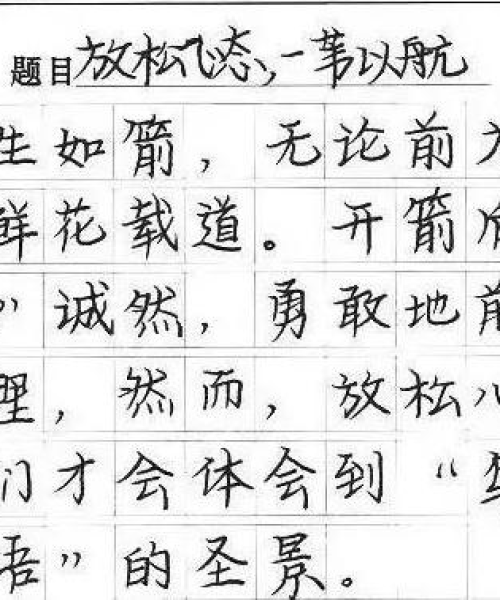 题目 放松心态,一苇以航
生如箭，无论前
鲜花载道。开箭
”诚然，勇敢地前
理，然而，放松心
们才会体会到“
”的圣景。